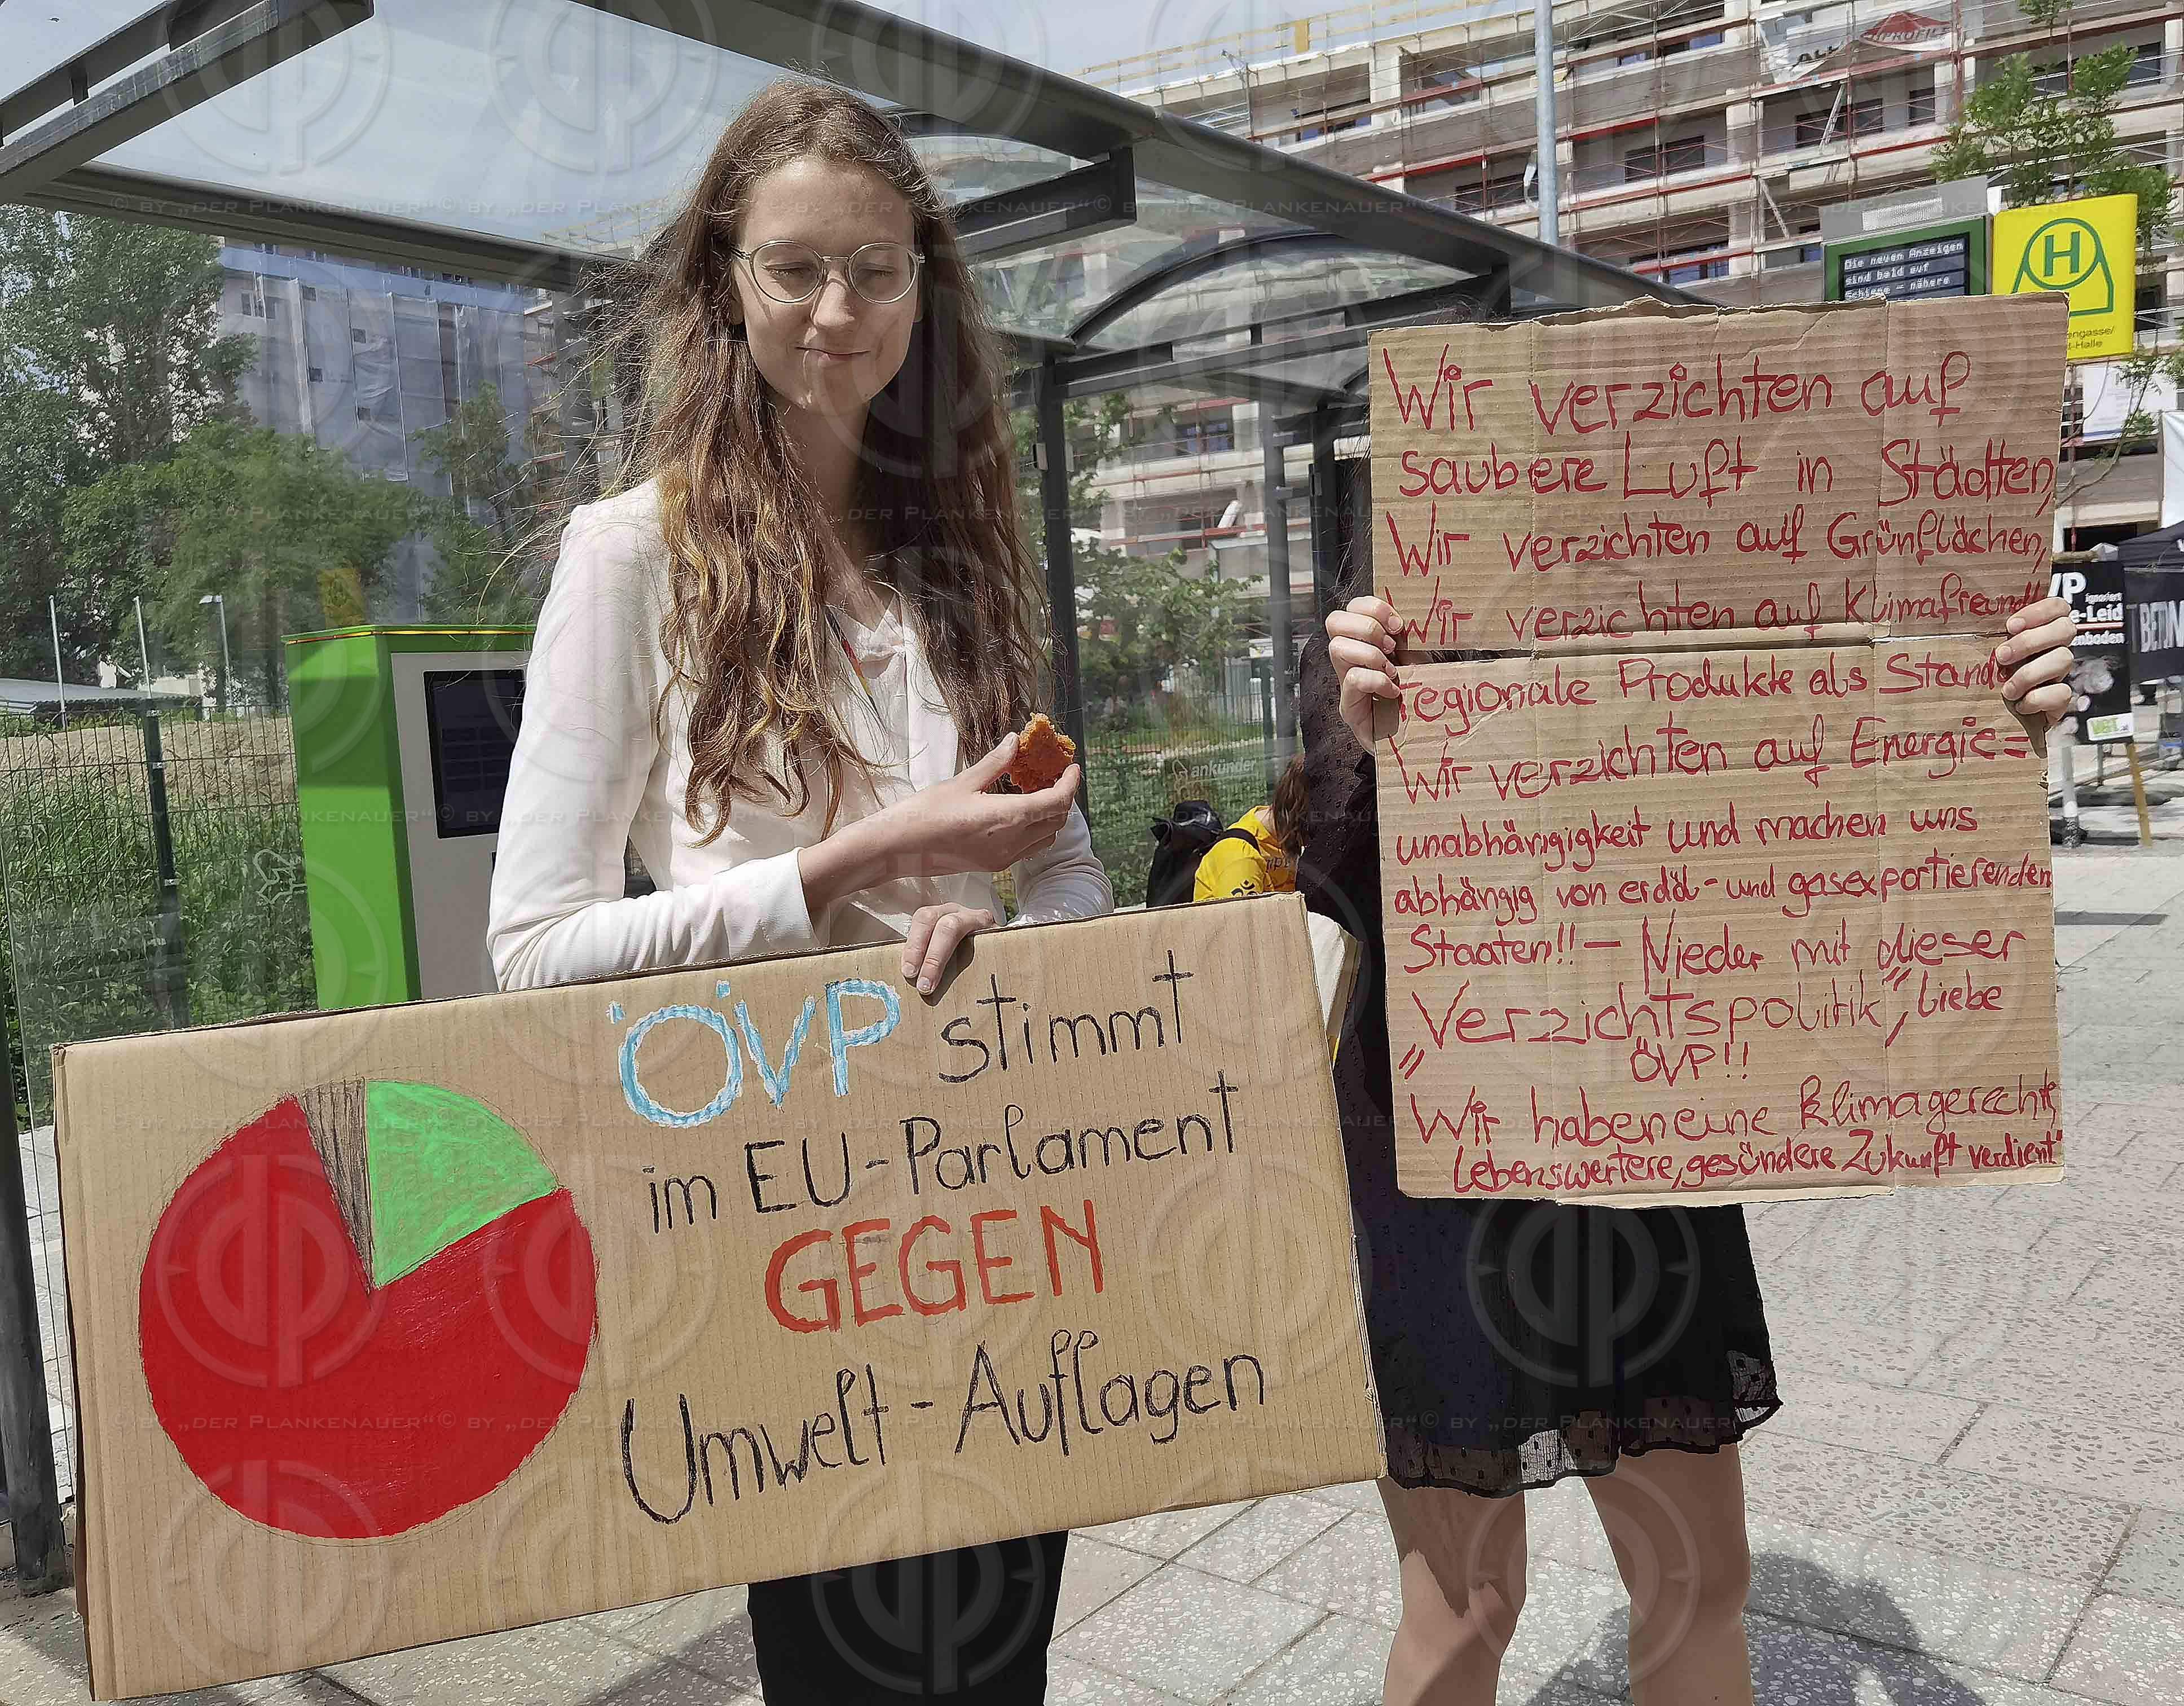 ÖVP stimmt
im EU-Parlament
GEGEN
Umwelt-Auflagen
Wir verzichten auf
saubere Luft in Städten,
Wir verzichten auf Grünflächen,
Wir verzichten auf Klimafreundl
regionale Produkte als Stand
Wir verzichten auf Energie=
unabhängigkeit und machen uns
abhängig von erdöl- und gasexportierenden
Staaten!! - Nieder mit dieser
"Verzichtspolitik", liebe
ÖVP!!
Wir haben eine klimagerechte,
lebenswertere, gesündere Zukunft verdient
Die neuen Anzeigen
sind bald auf
Schiene - nähere
H
engasse/
-Halle
PROFIL
ankünder
VP ignoriert
e-Leid
enboden
© BY „DER PLANKENAUER“